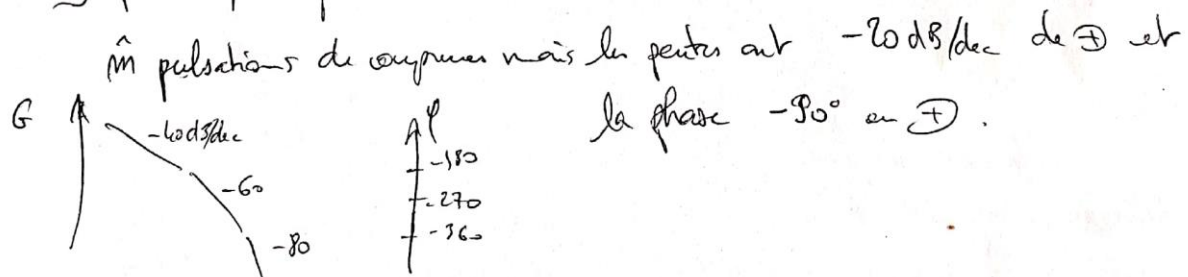 m̂ pulsations de coupures mais les pentes ont -20 dB/dec de ⊕ et
la phase -90° en ⊕.
G
-40dB/dec
-60
-80
φ
-180
-270
-360